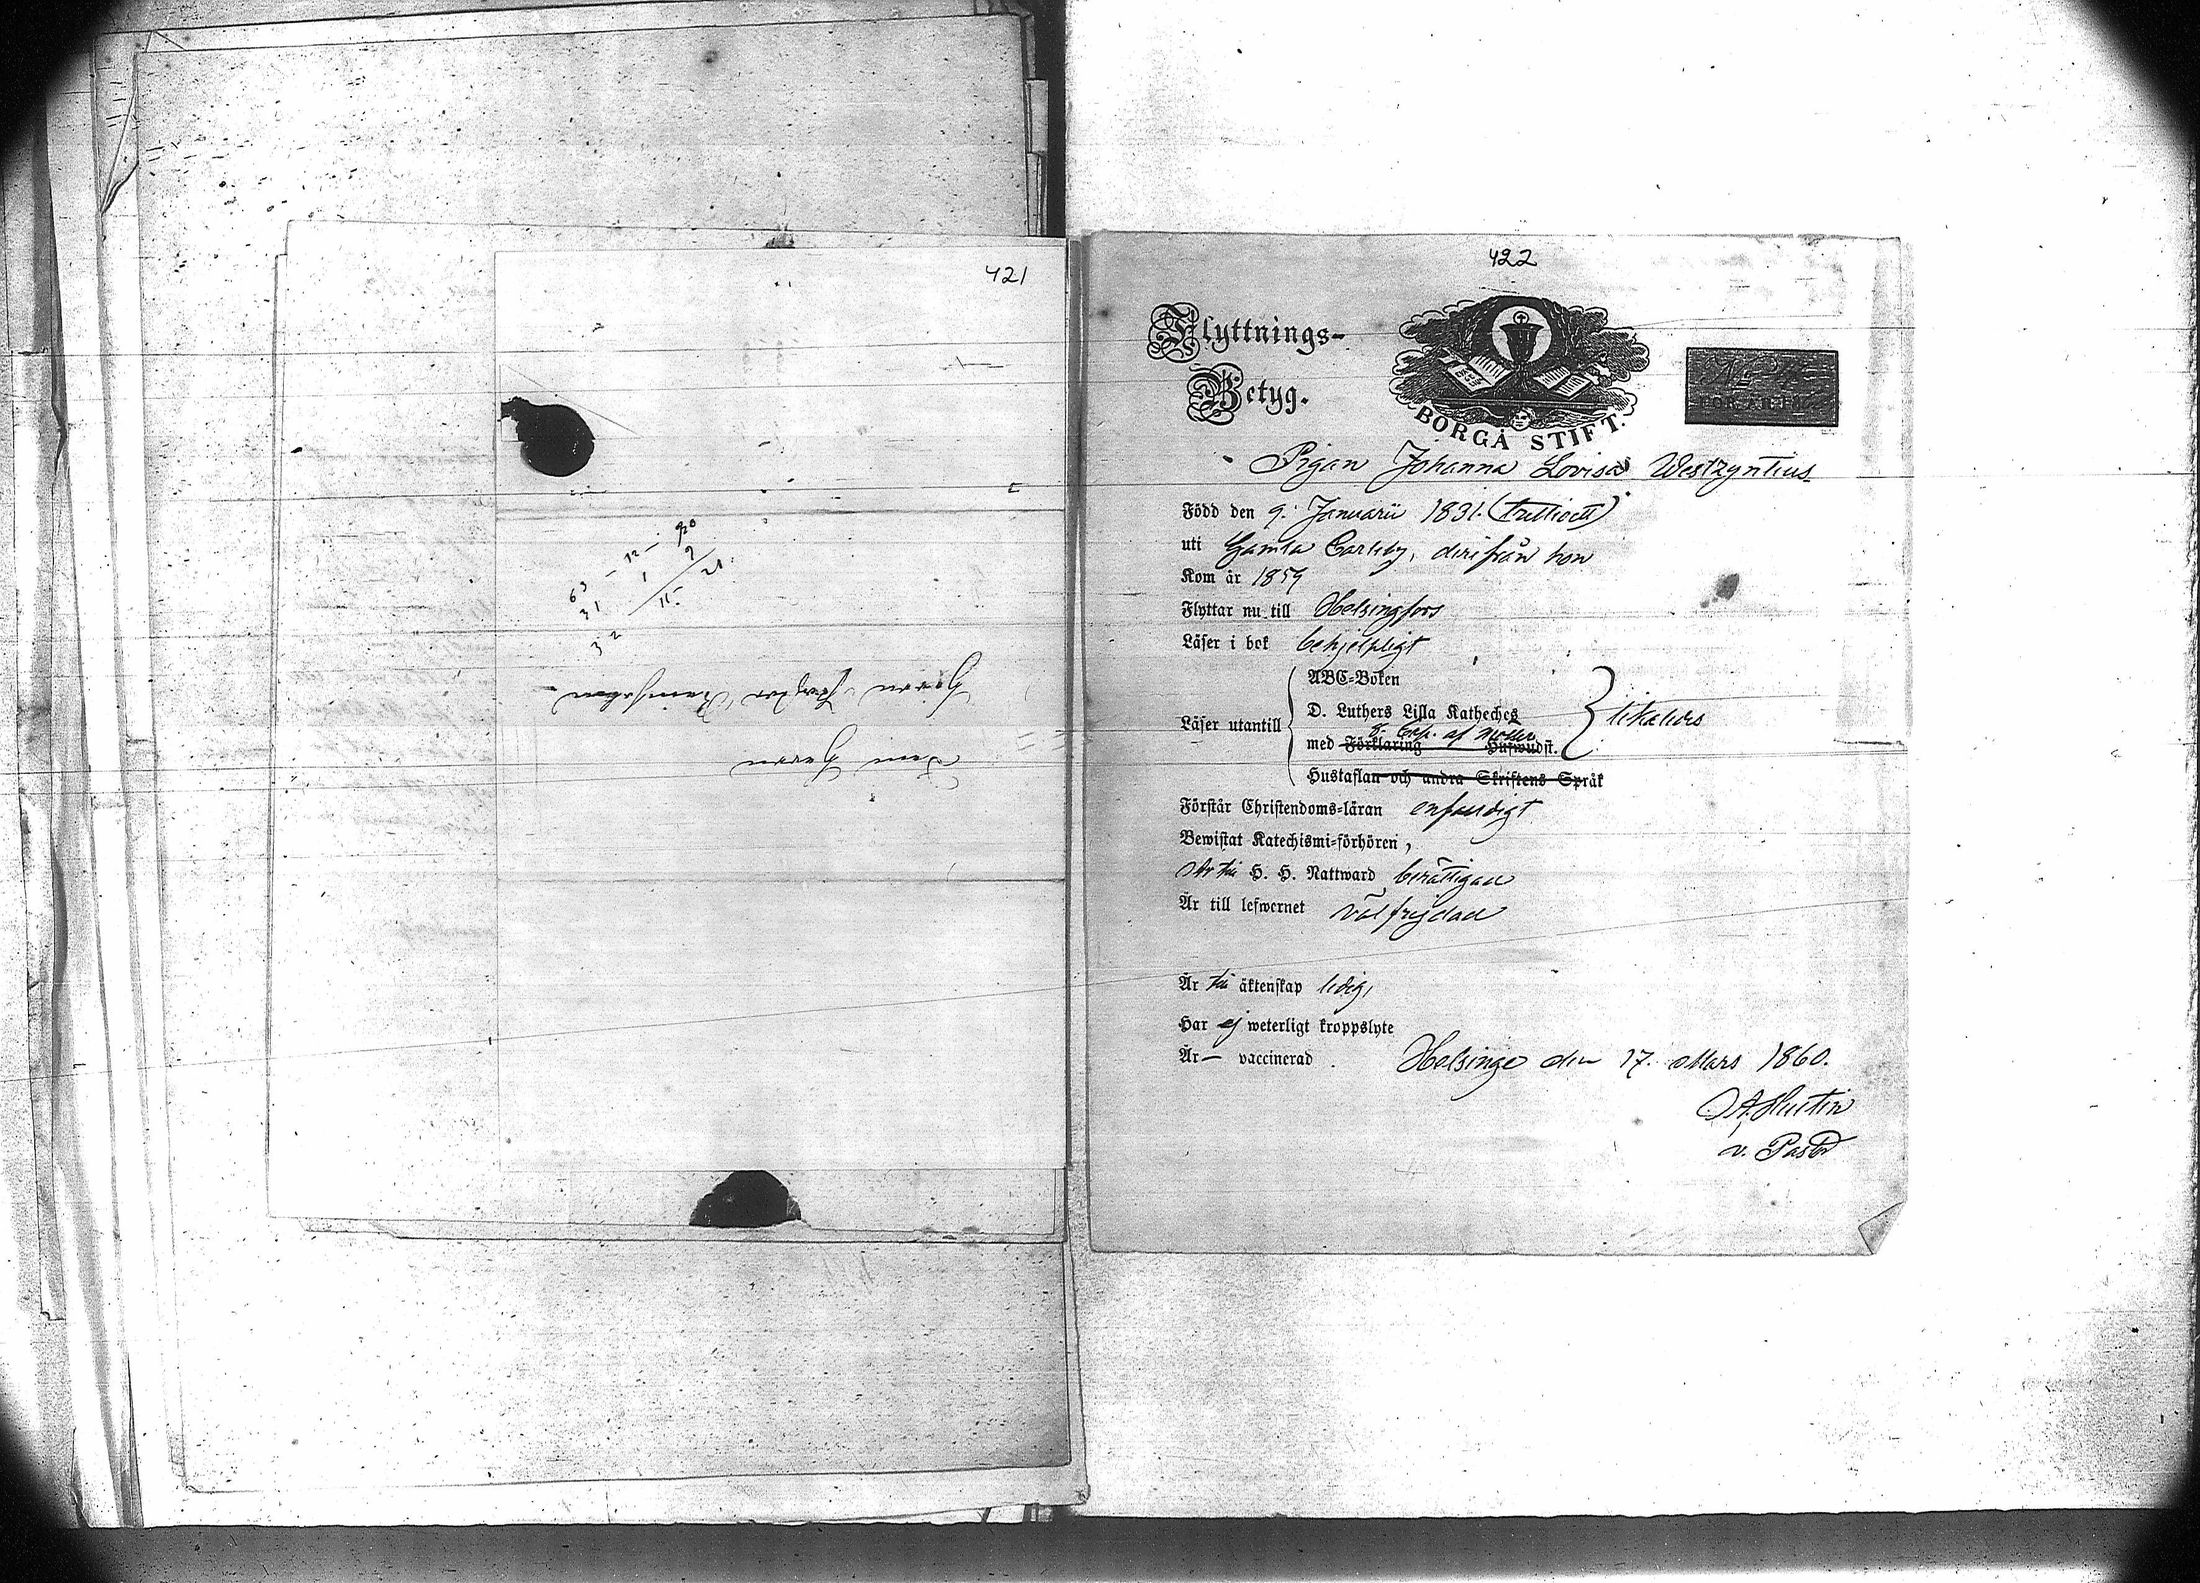 421
63 — 12 — 20
31 1 9
32 11 21
Herren
422
Flyttnings-
Betyg.
BORGÅ STIFT.
Pigan Johanna Lovisa Westzyntius
Född den 9. Januarii 1831. (trettioett)
uti Gamla Carleby, derifrån hon
Kom år 1859
Flyttar nu till Helsingfors
Läser i bok behjelpligt
ABC-Boken
Läser utantill D. Luthers Lilla Kateches
8. Cap. af
med Förklaring Hufwudst.
Hustaflan och andra Skriftens Språk
Förstår Christendoms-läran enfaldigt
Bewistat Katechismi-förhören,
Är till H. H. Nattward berättigad
Är till lefwernet väl frejdad
Är till äktenskap ledig,
Har ej weterligt kroppslyte
Är — vaccinerad. Helsinge den 17. Mars 1860.
v. Pastor